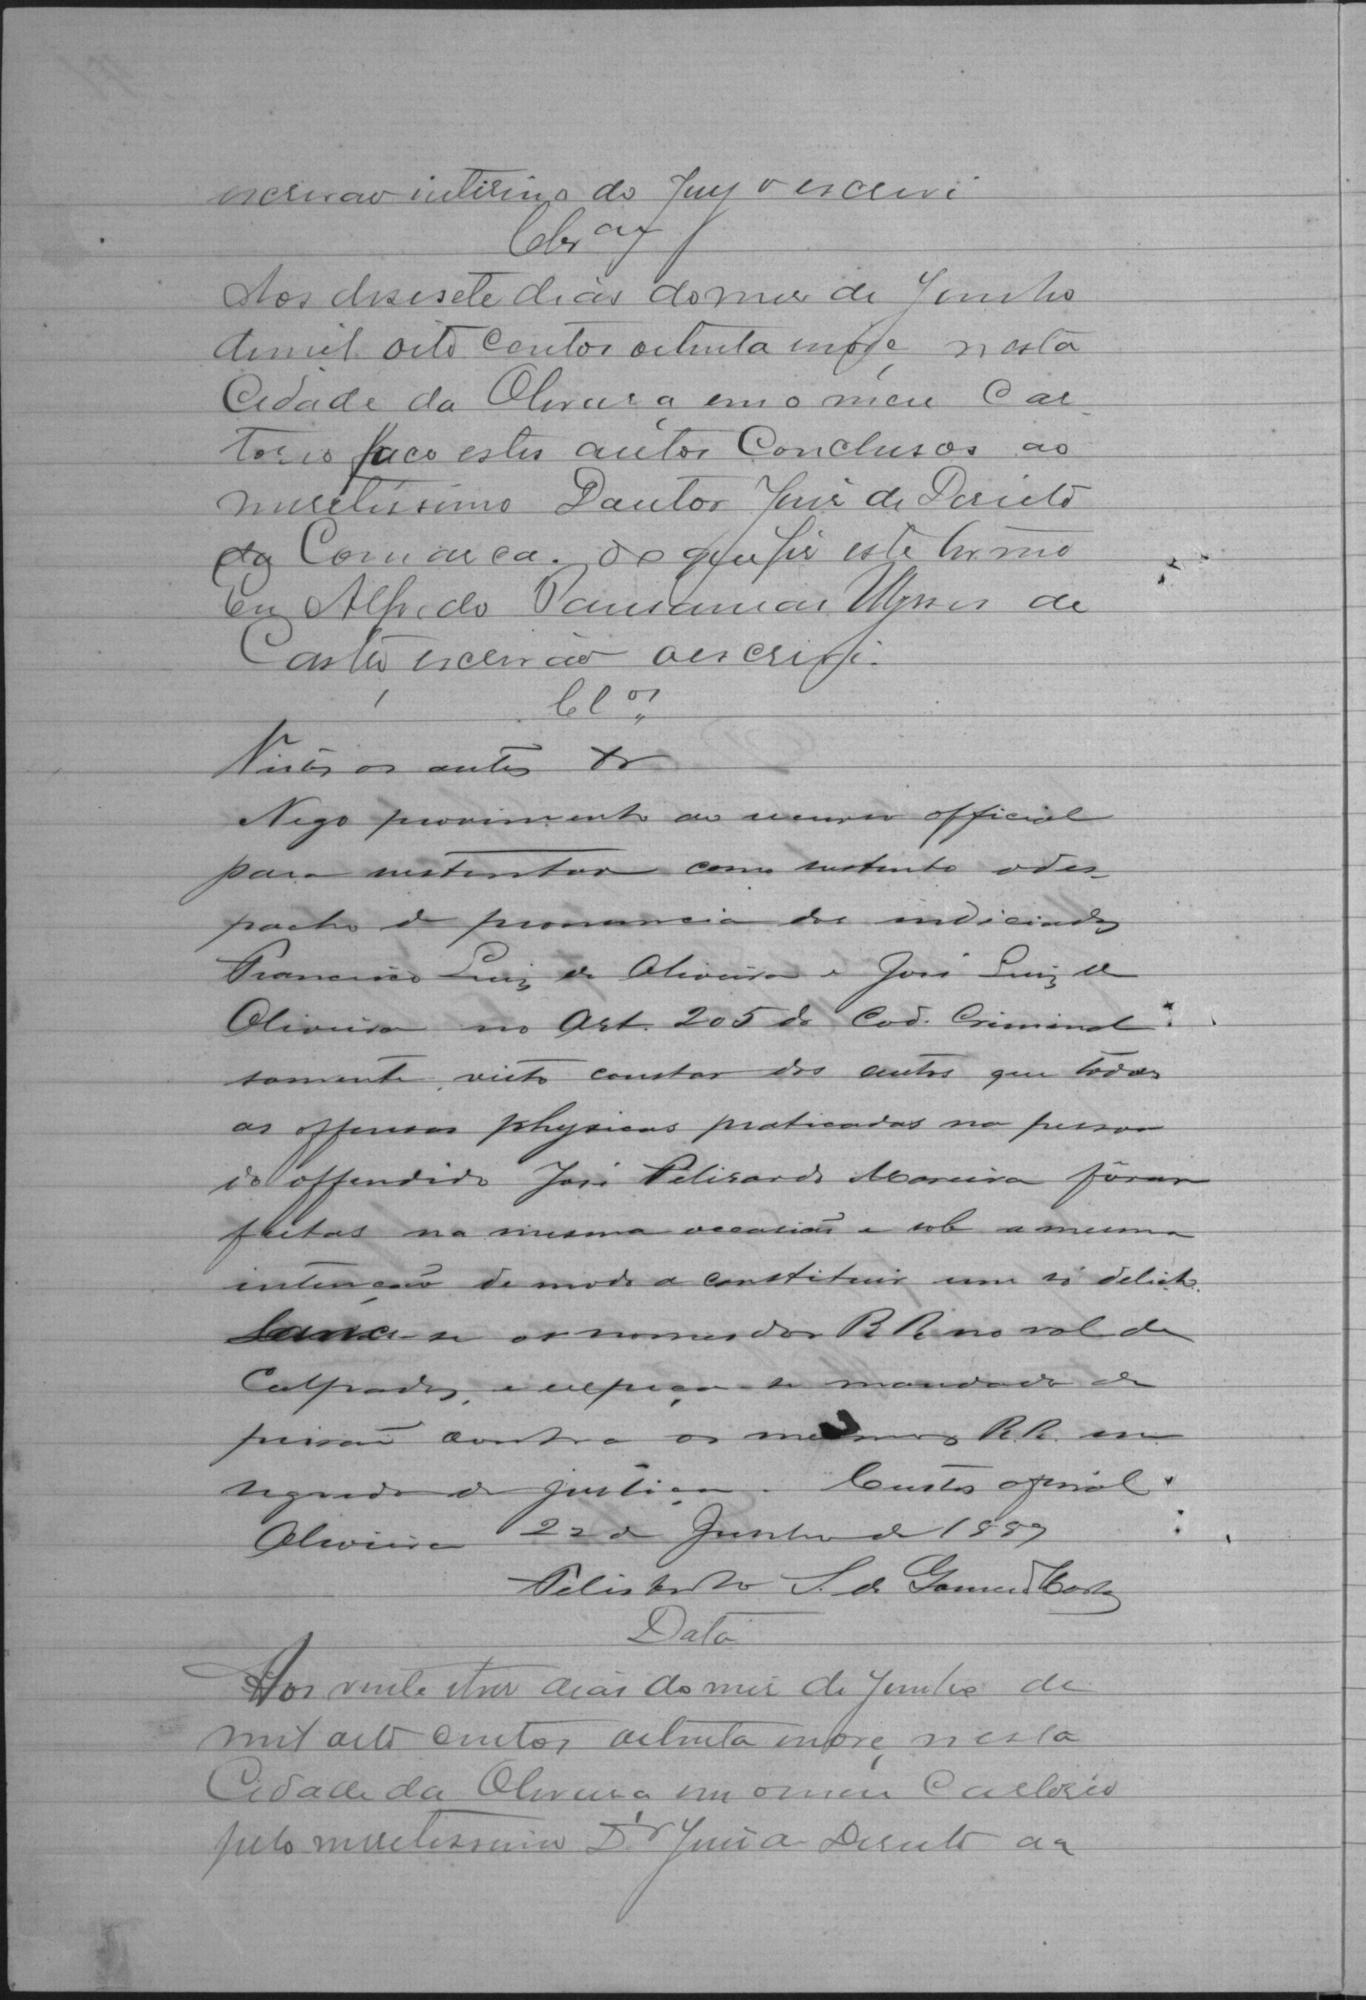 escrivão interino do Jury o escrevi
Cls.
Aos desesete dias do mes de Junho
de mil oito centos oitenta e nove, nesta
Cidade da Oliveira em o meu Car-
torio faco estes autos Conclusos ao
meretissimo Doutor Juis de Dereito
da Comarca. do que fis este termo
Eu Alfredo Pausanias Ulysses de
Casto escrivão o escrivi.
Cl.os
Vistos os autos &
Nego provimento ao recurso official
para sustentar como sustento o des-
pacho de pronuncia dos indiciados
Francisco Luiz de Oliveira e José Luiz de
Oliveira no Art. 205 do Cod. Criminal
somente, visto constar dos autos que todas
as offensas physicas praticadas na pessoa
do offendido José Felisardo Moreira fôram
feitas na mesma occasião e sob a mesma
intenção de modo a constituir um só delicto.
Lance-se os nomes dos RR. no rol de
Culpados, e expeça-se mandado de
prisão contra os mesmos R.R. em
segredo de justiça. Custas afinal.
Oliveira 22 de Junho de 1889
Felisberto S. de Gomes Costa
Data
Aos vinte e tres dias do mes de Junho de
mil oito centos oitenta e nove, nesta
Cidade da Oliveira em o meu Cartorio
pelo meretissimo Dr Juis de Dereito da